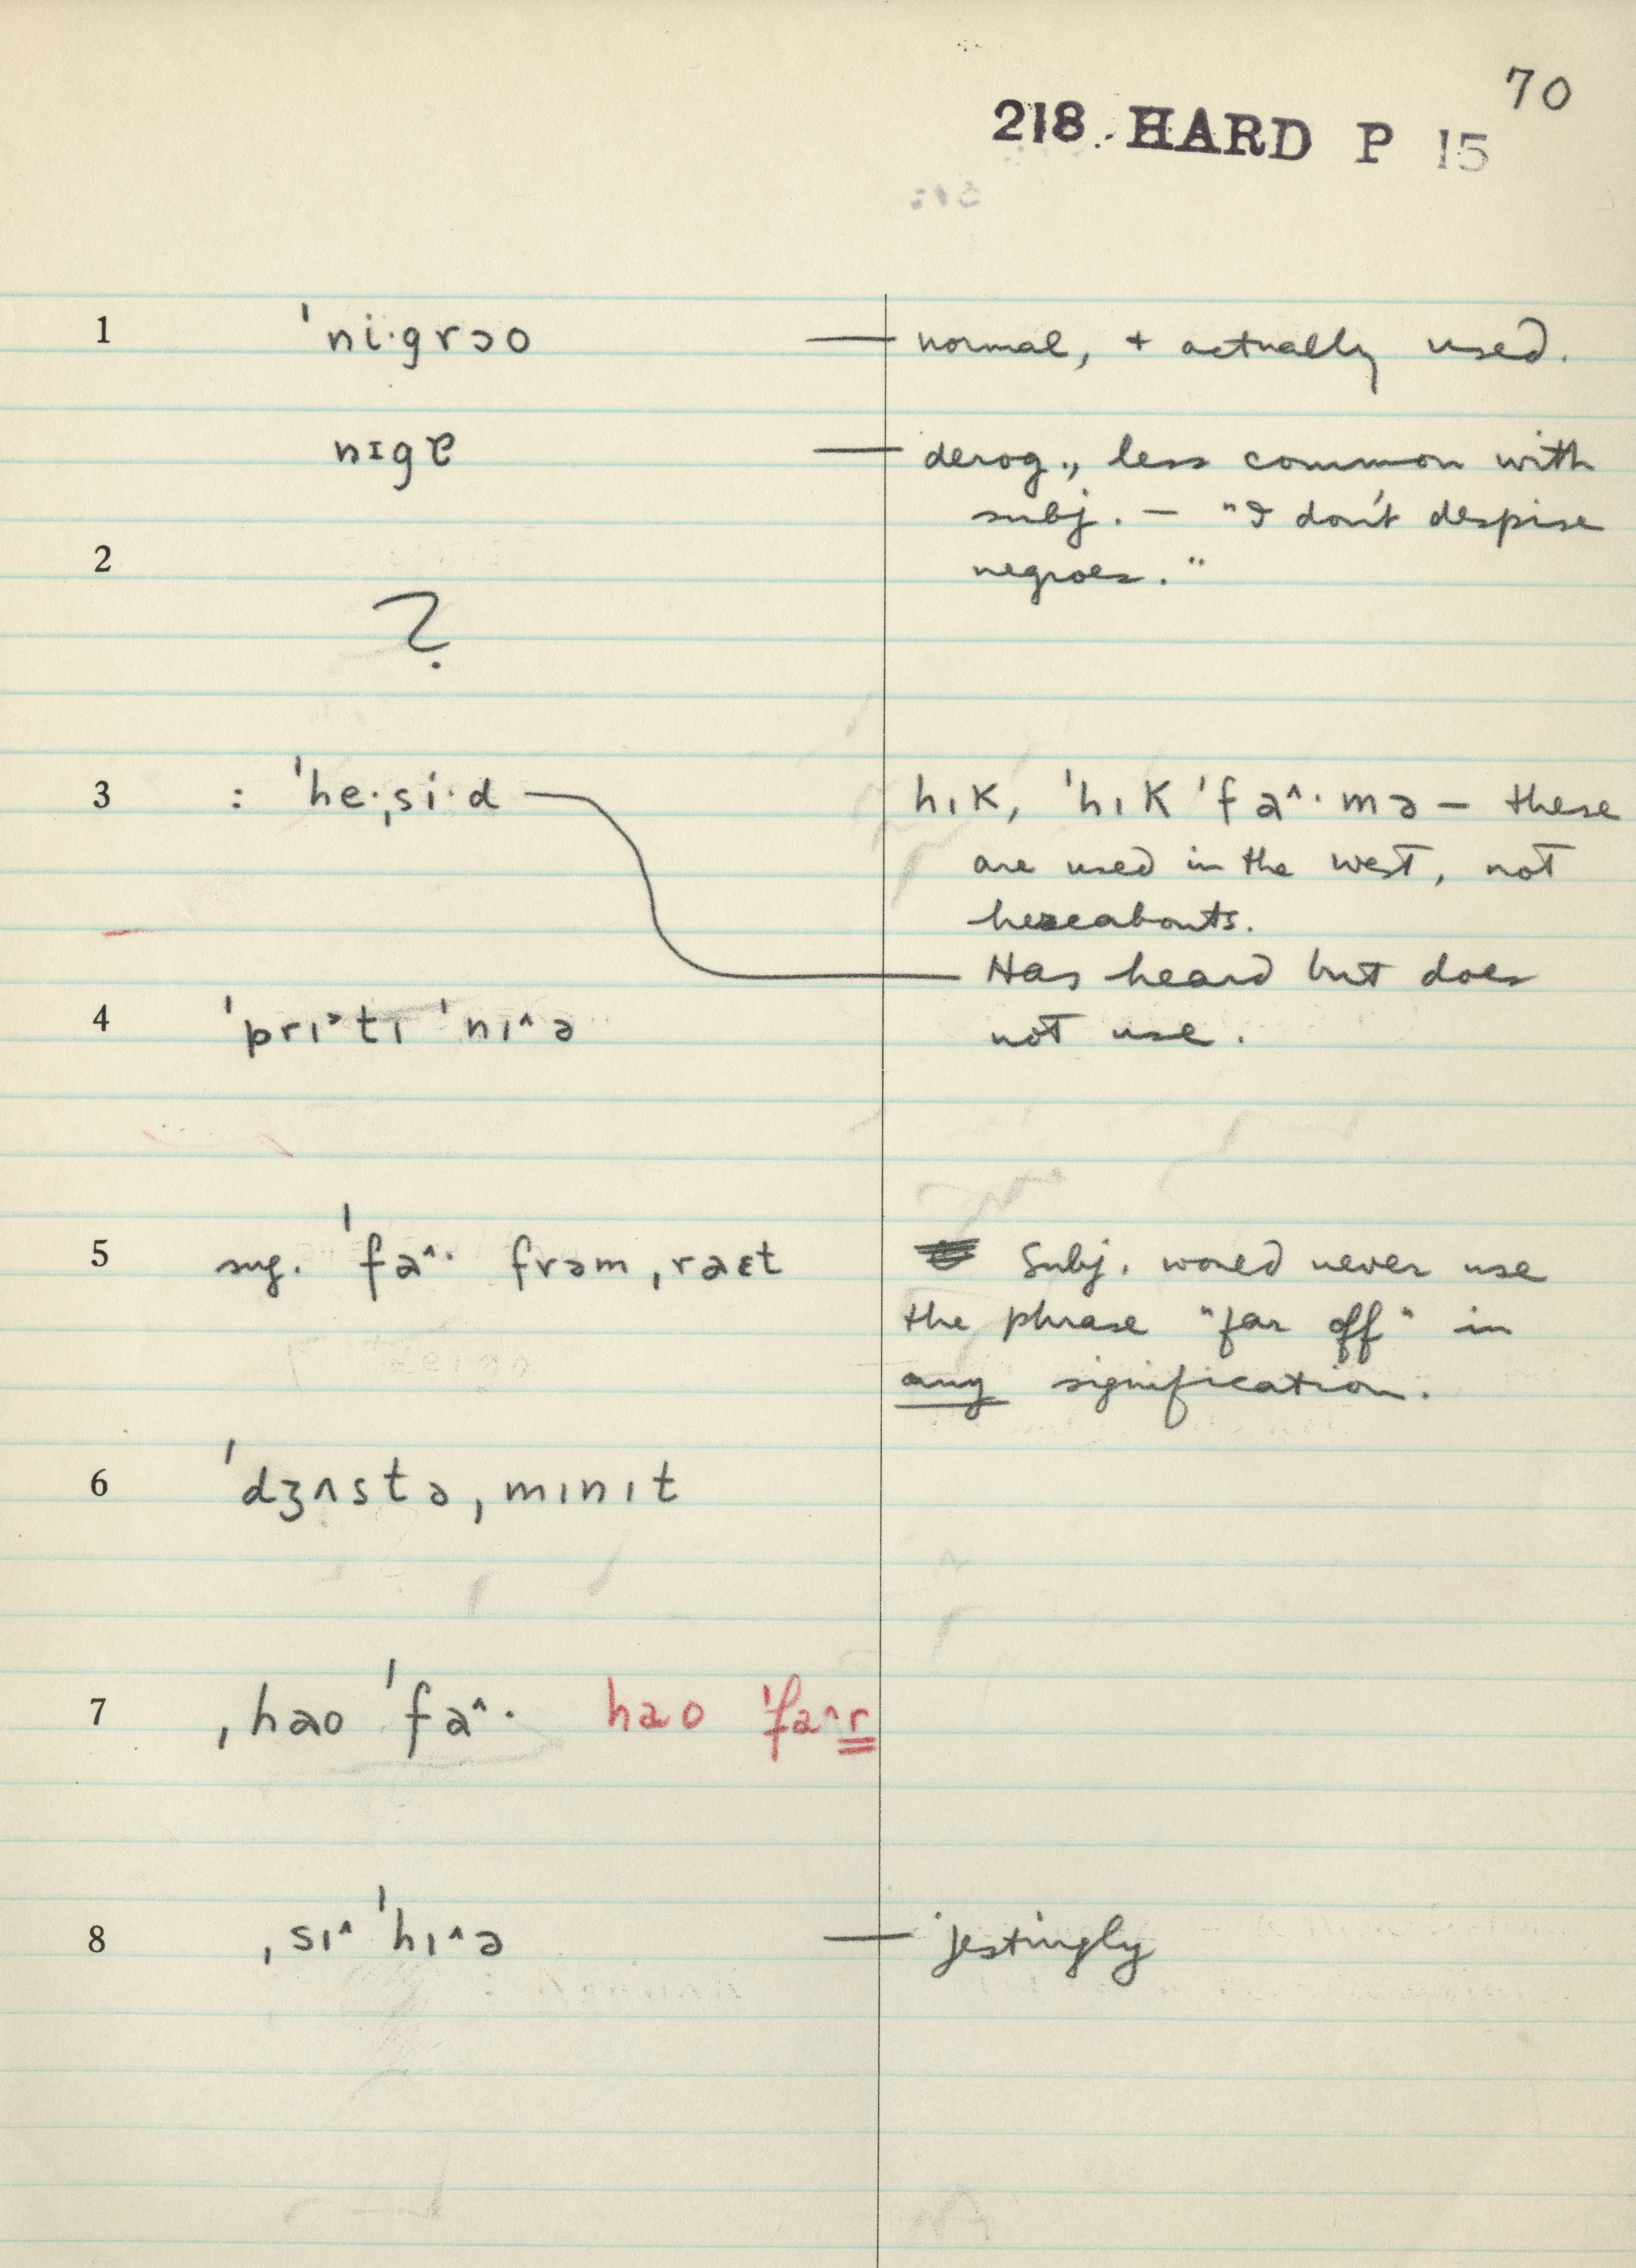 70
218. HARD P 15
1 ˈni·grɔo — normal, + actually used.
nɪgɐ — derog., less common with
subj. — "I don't despise
2 negroes."
?
3 : ˈhe·ˌsi·d — hɪK, ˈhɪK ˈfa^·mə — these
are used in the west, not
hereabouts.
Has heard but does
4 ˈprɪ˃tɪ ˈnɪ^ə not use.
5 sug. ˈfa^· frəmˌraɛt Subj. would never use
the phrase "far off" in
any signification.
6 ˈdʒʌstəˌmɪnɪt
7 ˌhao ˈfa^· hao ˈfa^r
8 ˌsɪ^ ˈhɪ^ə — jestingly